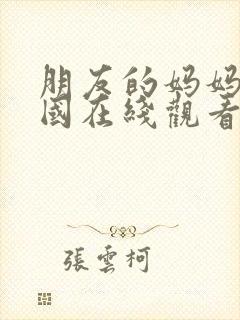 朋友的妈妈
國在綫觀看
張雲柯